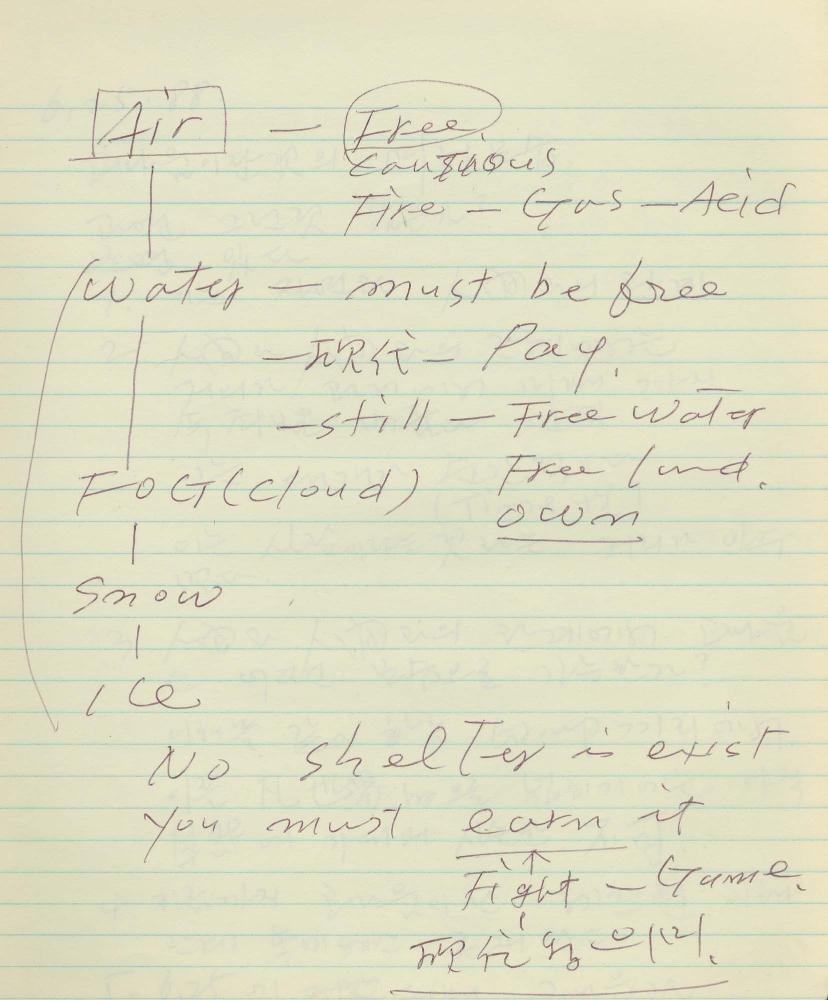 Air — Free.
Contnuous
Fire — Gas — Acid
Water — must be free
— 现代 — Pay.
— still — Free Water
FOG (cloud) Free land.
own
Snow
ICe
No shelter is exist
You must earn it
Fight — Game.
现代 의미.